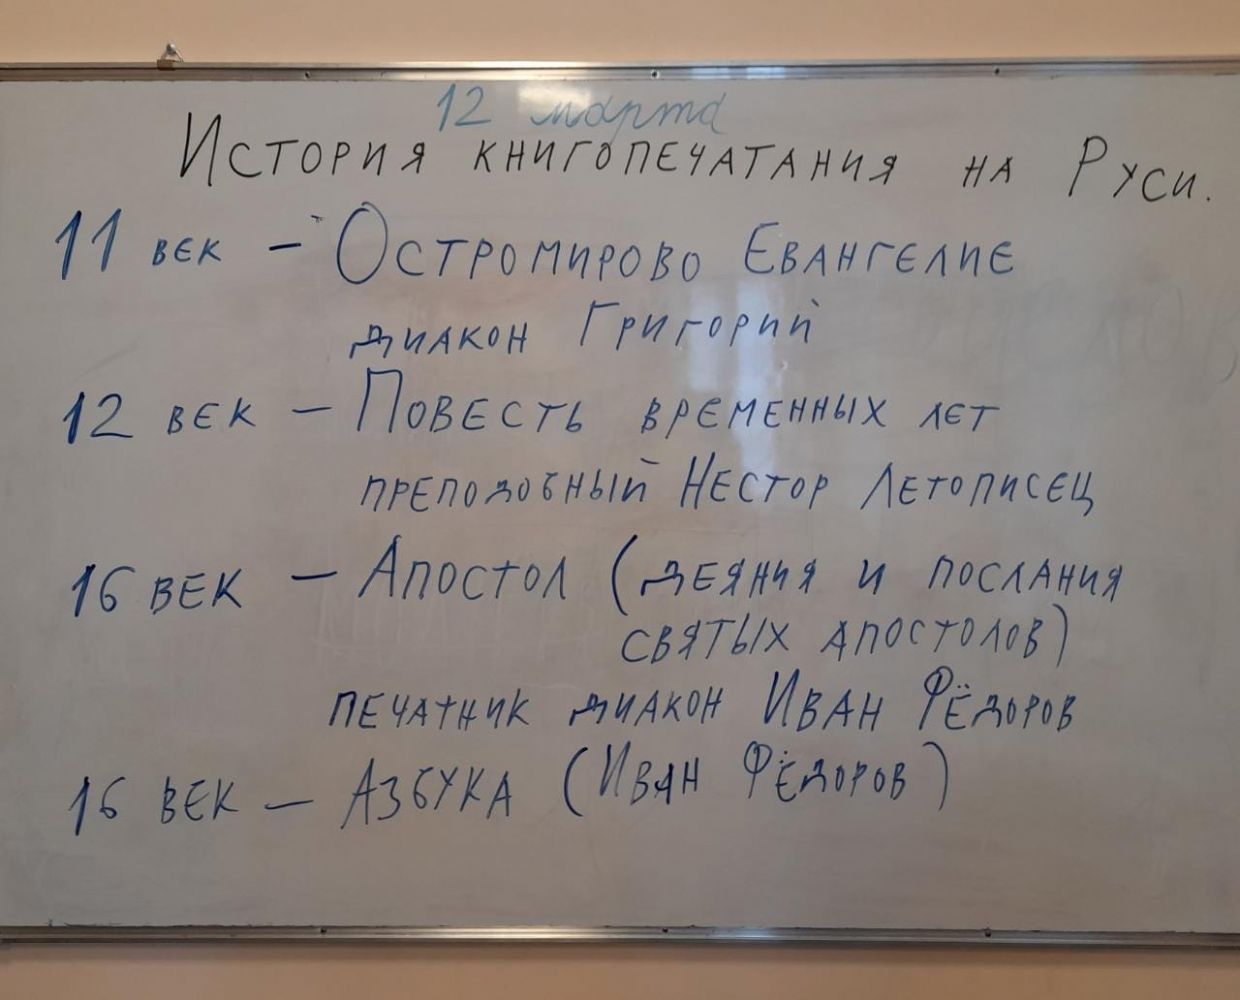 12 марта
История книгопечатания на Руси.
11 век - Остромирово Евангелие
диакон Григорий
12 век - Повесть временных лет
преподобный Нестор Летописец
16 век - Апостол (деяния и послания
святых апостолов)
печатник диакон Иван Фёдоров
16 век - Азбука (Иван Фёдоров)